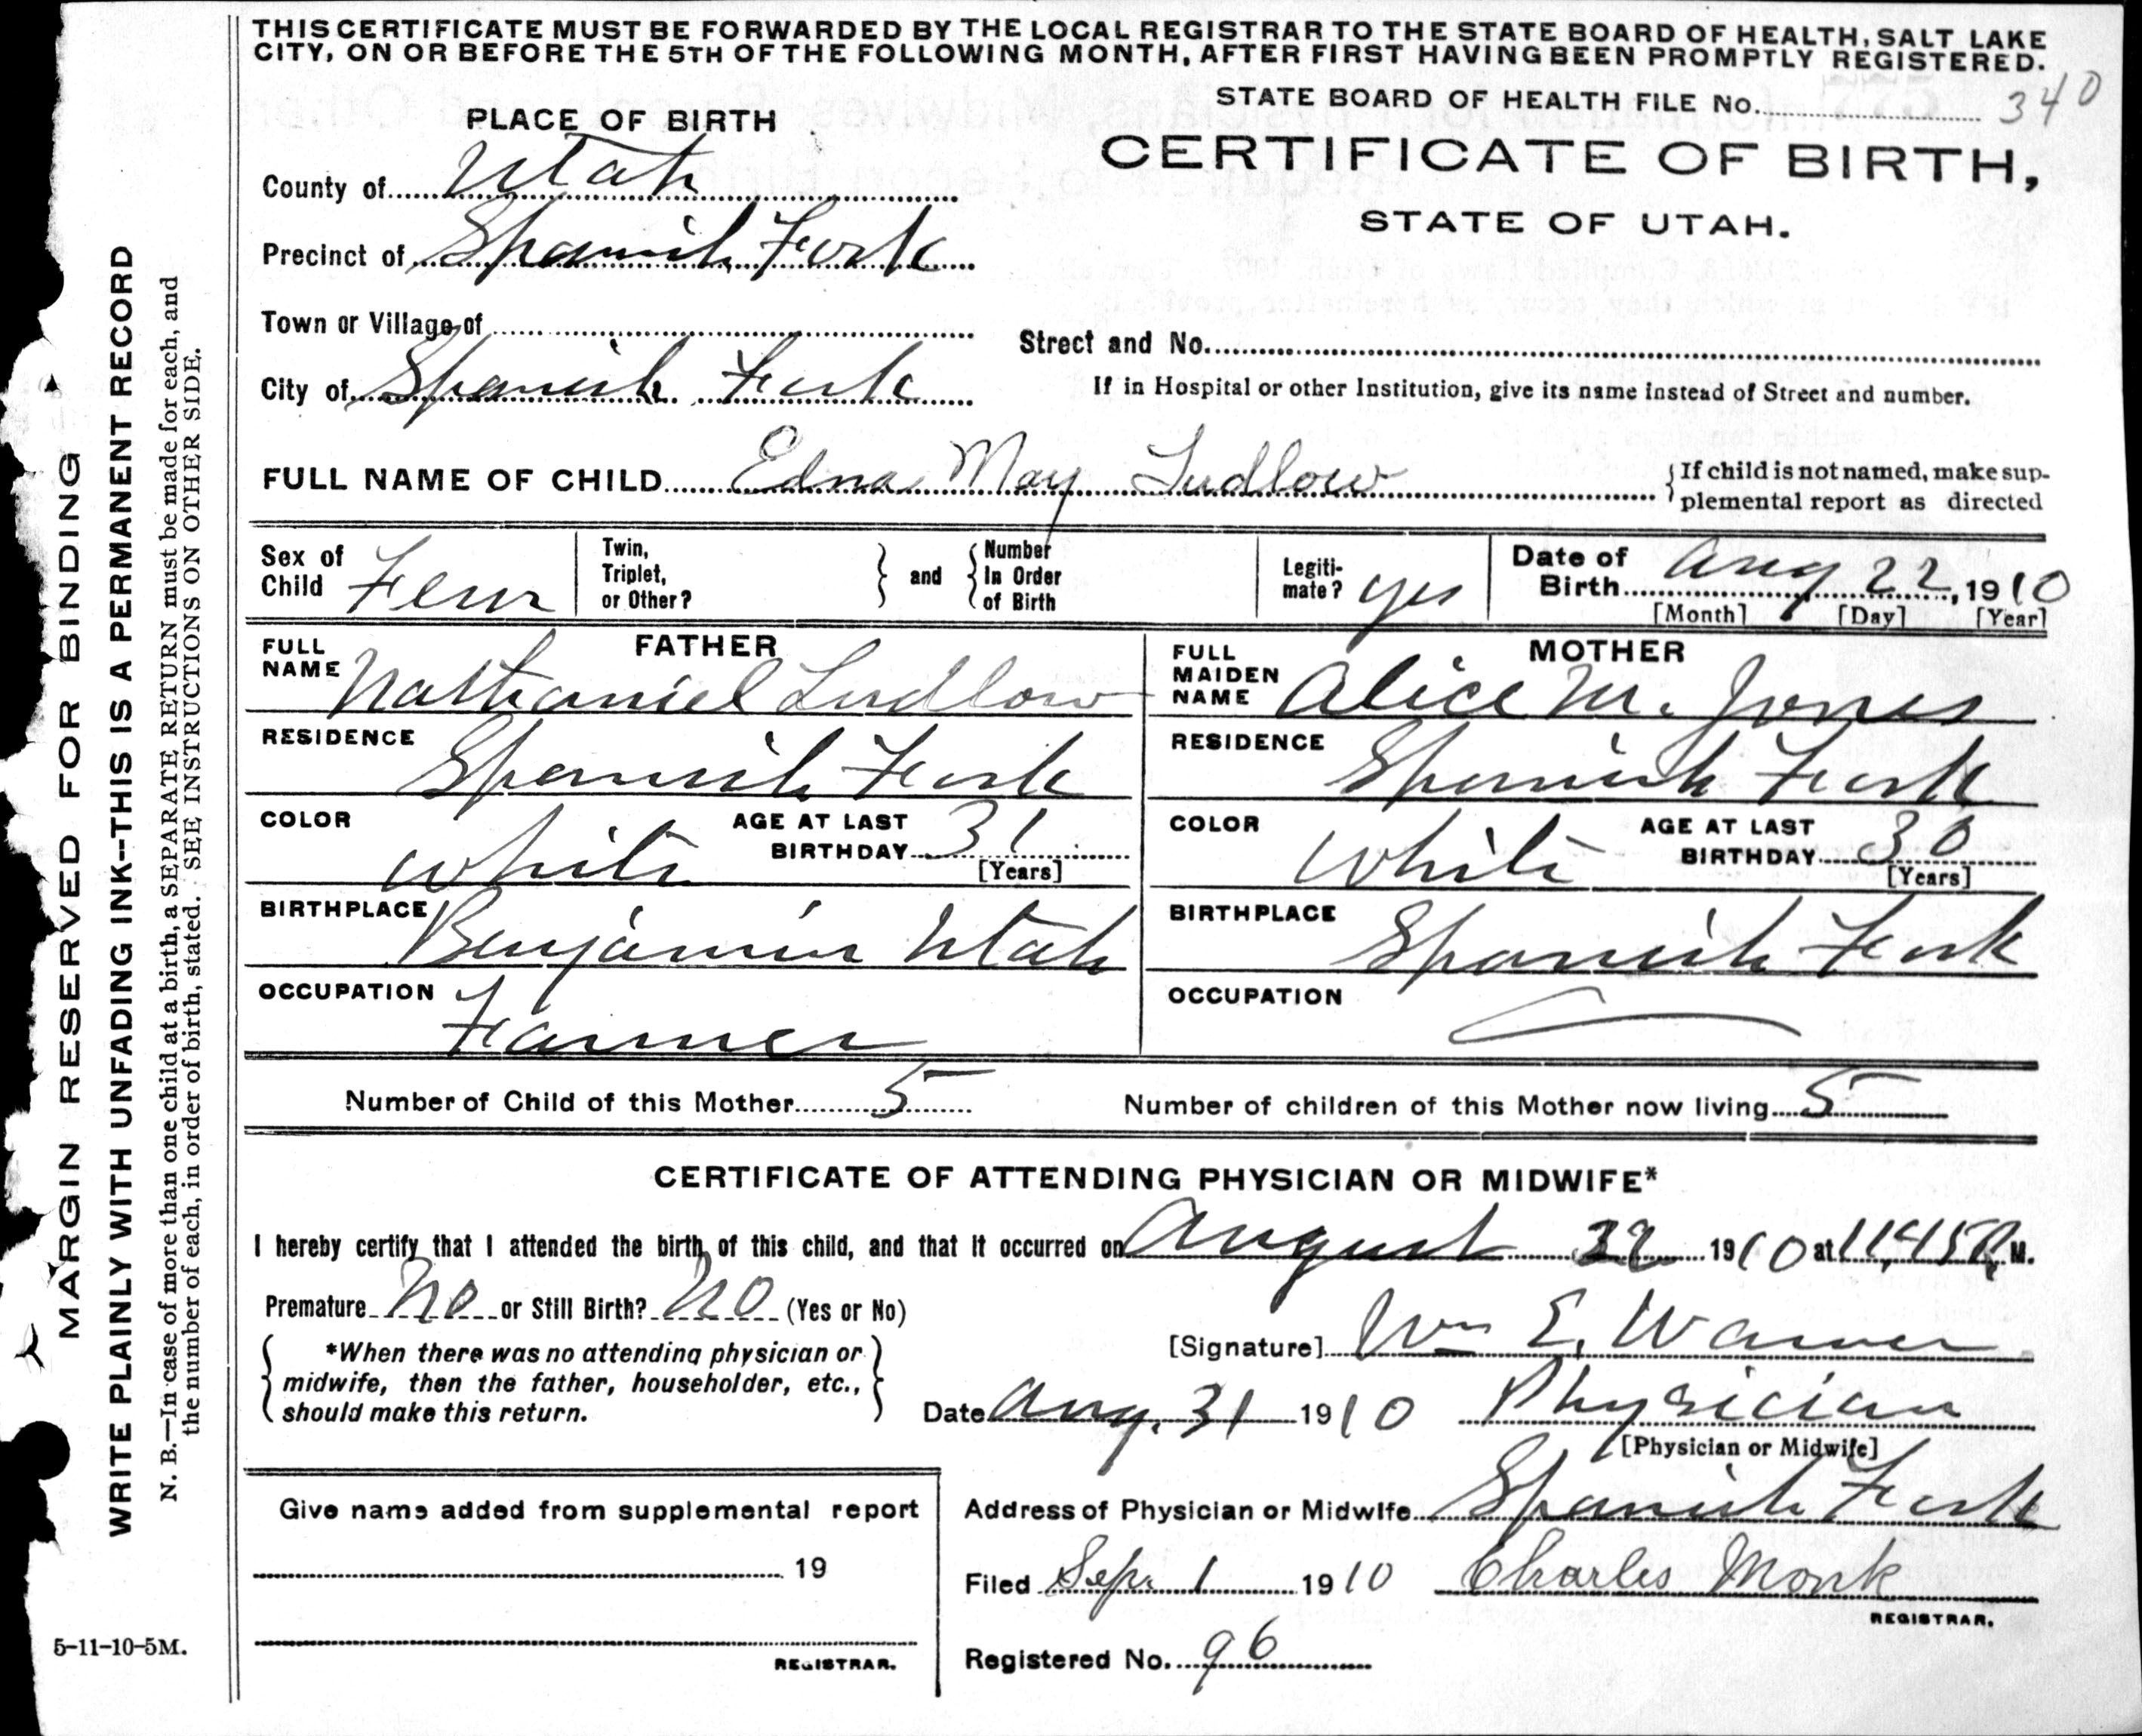 THIS CERTIFICATE MUST BE FORWARDED BY THE LOCAL REGISTRAR TO THE STATE BOARD OF HEALTH, SALT LAKE
CITY, ON OR BEFORE THE 5TH OF THE FOLLOWING MONTH, AFTER FIRST HAVING BEEN PROMPTLY REGISTERED.
STATE BOARD OF HEALTH FILE No. 340
PLACE OF BIRTH
CERTIFICATE OF BIRTH,
STATE OF UTAH.
County of Utah
Precinct of Spanish Fork
Town or Village of
Street and No.
City of Spanish Fork
If in Hospital or other Institution, give its name instead of Street and number.
FULL NAME OF CHILD Edna May Ludlow
If child is not named, make sup-
plemental report as directed
Sex of Child Fem
Twin, Triplet, or Other?
and
Number In Order of Birth
Legiti-mate? yes
Date of Birth Aug 22, 1910
[Month] [Day] [Year]
FATHER
FULL NAME Nathaniel Ludlow
RESIDENCE Spanish Fork
COLOR White AGE AT LAST BIRTHDAY 31
[Years]
BIRTHPLACE Benjamin Utah
OCCUPATION Farmer
MOTHER
FULL MAIDEN NAME Alice M. Jones
RESIDENCE Spanish Fork
COLOR White AGE AT LAST BIRTHDAY 30
[Years]
BIRTHPLACE Spanish Fork
OCCUPATION
Number of Child of this Mother 5 Number of children of this Mother now living 5
CERTIFICATE OF ATTENDING PHYSICIAN OR MIDWIFE*
I hereby certify that I attended the birth of this child, and that it occurred on August 22 1910 at 11,45 P, M.
Premature no or Still Birth? no (Yes or No)
*When there was no attending physician or
midwife, then the father, householder, etc.,
should make this return.
[Signature] Wm E. Warner
Date Aug. 31 1910 Physician
[Physician or Midwife]
Give name added from supplemental report
19
REGISTRAR.
Address of Physician or Midwife Spanish Fork
Filed Sep. 1 1910 Charles Monk
REGISTRAR.
Registered No. 96
MARGIN RESERVED FOR BINDING
WRITE PLAINLY WITH UNFADING INK--THIS IS A PERMANENT RECORD
N. B.—In case of more than one child at a birth, a SEPARATE RETURN must be made for each, and
the number of each, in order of birth, stated. SEE INSTRUCTIONS ON OTHER SIDE.
5-11-10-5M.